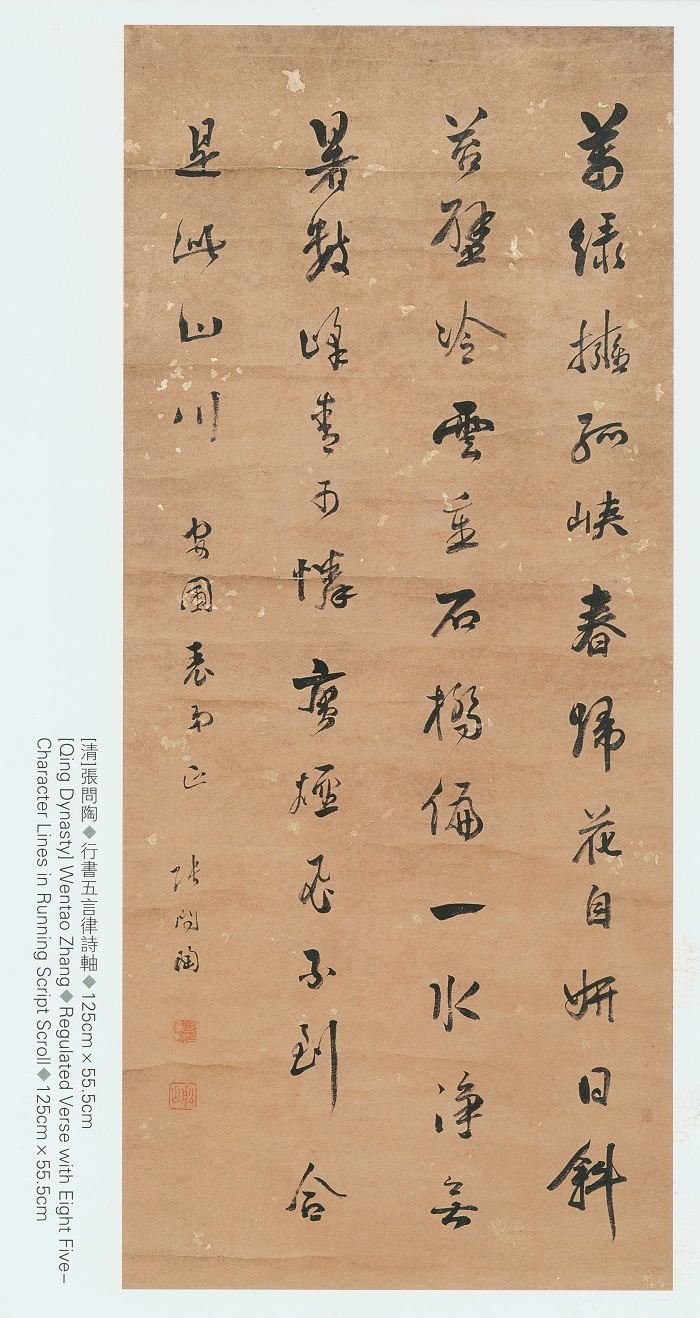 萬綠擁孤峽春歸花自妍日斜
苔壁冷雲重石橋偏一水淨無
暑數峰青可憐黃塵飛不到合
是此山川 安圃表弟正 張問陶
[清]張問陶◆行書五言律詩軸◆125cm×55.5cm
[Qing Dynasty] Wentao Zhang◆Regulated Verse with Eight Five–
Character Lines in Running Script Scroll◆125cm×55.5cm